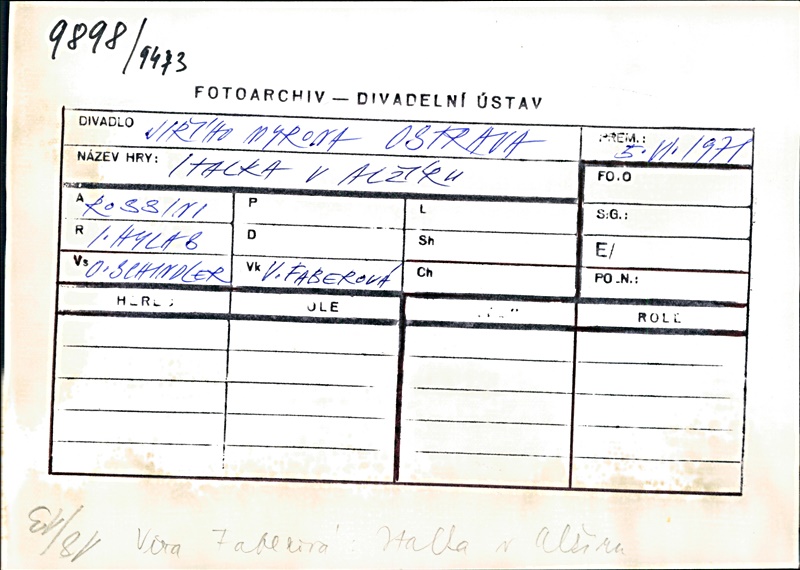 9898/9473
FOTOARCHIV — DIVADELNÍ ÚSTAV
DIVADLO JIŘÍHO MYRONA OSTRAVA PREM.: 5. VI. 1971
NÁZEV HRY: ITALKA V ALŽÍRU
FO.O
A ROSSINI P L S.G.:
R I. HYLAS D Sh E/
Vs O. SCHINDLER Vk V. FABEROVÁ Ch PO.N.:
ROLE
Věra Faberová: Italka v Alžíru